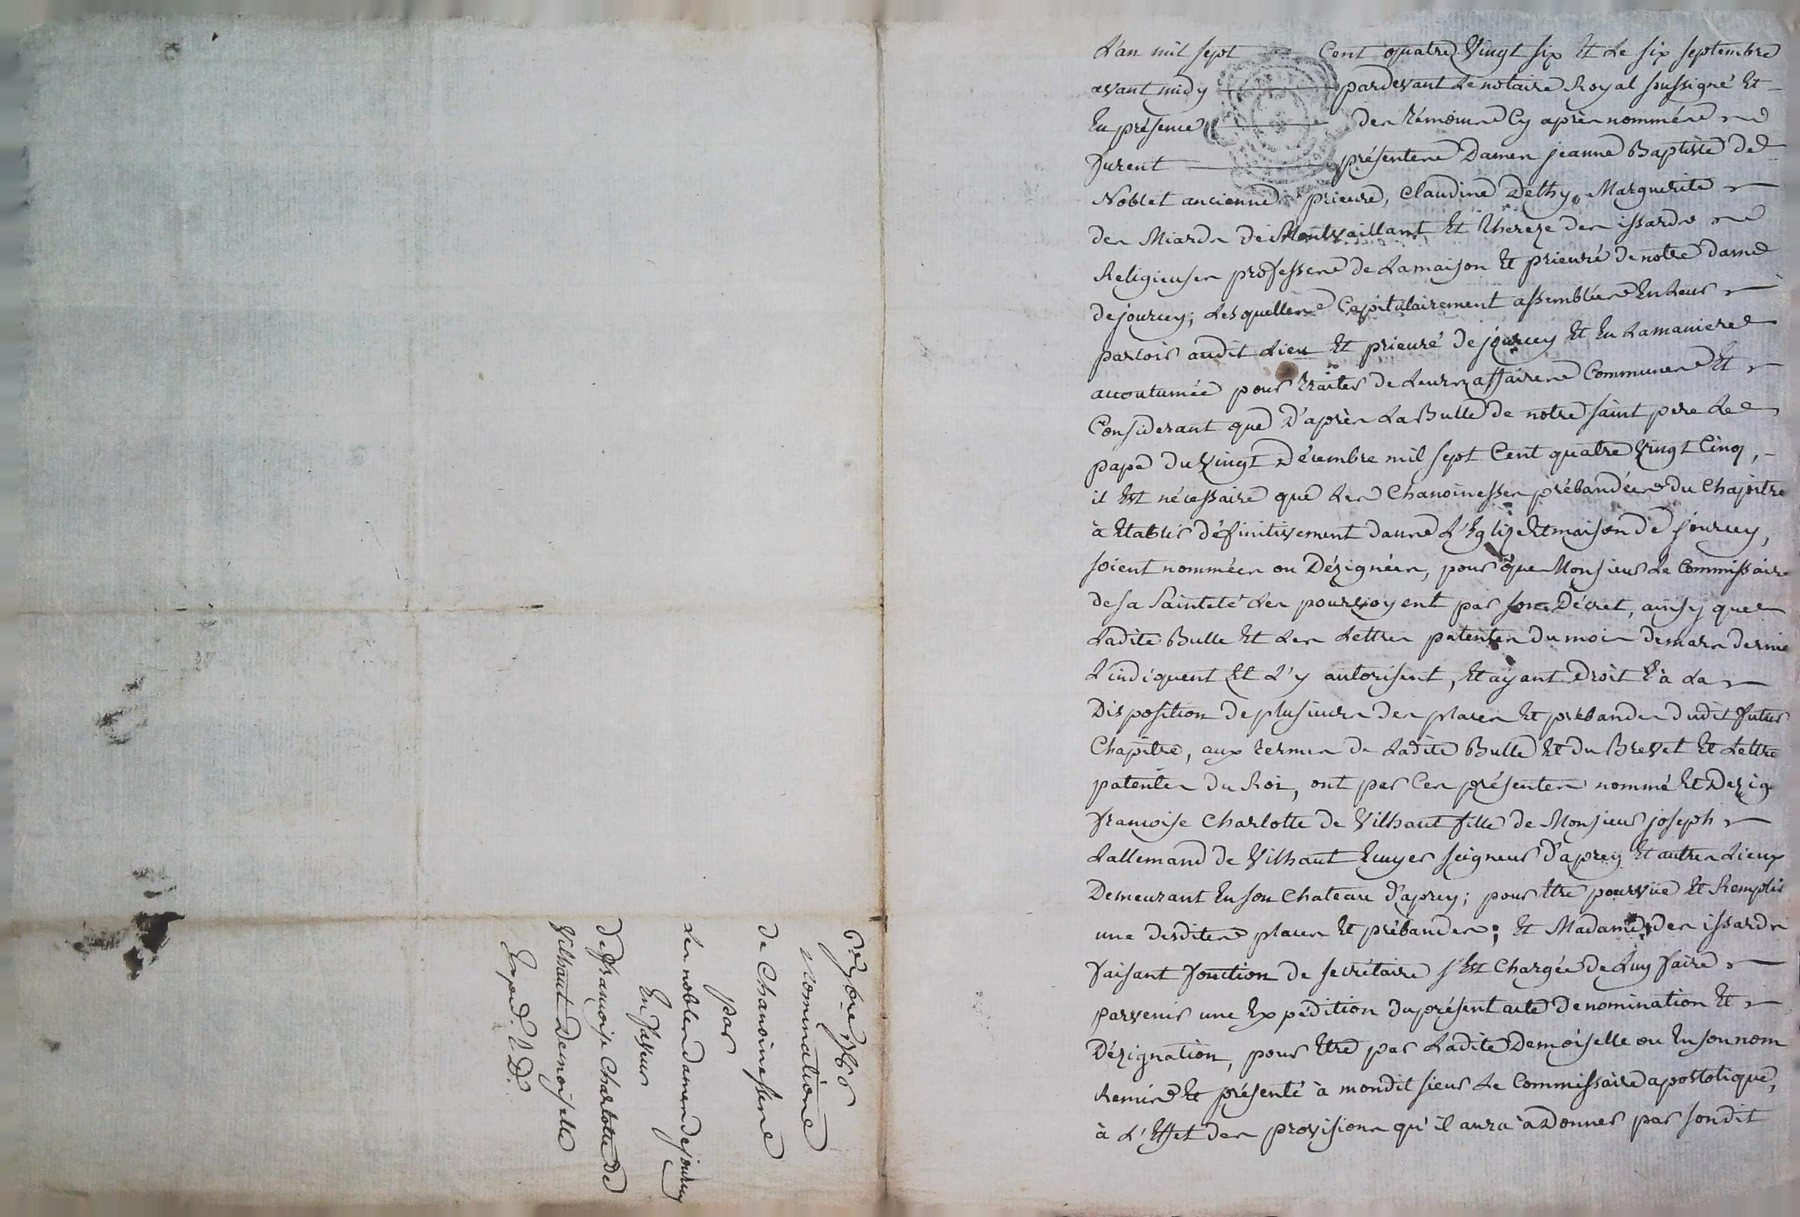 L'an mil sept Cent quatre Vingt six Et Le six septembre
avant midy pardevant Le notaire Royal soussigné Et
En présence des témoins Cy après nommés
furent présentes Dames jeanne Baptiste de
Noblet ancienne prieure, Claudine Dethy, Marguerite
des Miards de Montvaillant Et Thereze des issards
Religieuses professes de Lamaison Et prieuré de notre dame
de jourcey; Lesquelles Capitulairement assemblées En Leur
parloir audit Lieu Et prieuré de jourcey Et En Lamaniere
accoutumée pour traiter de Leurs affaires Communes Et
Considerant que D'après La Bulle de notre saint pere Le
pape du Vingt Décembre mil sept Cent quatre Vingt Cinq,
il Est nécessaire que Les Chanoinesses prébandées du Chapitre
à Etablir définitivement dans L'Eglize Et maison de jourcey,
soient nommées ou Dézignées, pour que Monsieur Le Commissaire
de sa Sainteté Les pourvoyent par son Décret, ainsy que
Ladite Bulle Et Les Lettres patentes du mois de mars dernier
L'indiquent Et L'y autorisent, Et ayant Droit à La
Disposition de plusieurs des places Et prébandes dudit futur
Chapitre, aux termes de Ladite Bulle Et du Brevet Et Lettres
patentes du Roi, ont par Ces présentes nommé Et Dezig
francoise Charlotte de Vilhaut fille de Monsieur joseph
Lallemand de Vilhaut Ecuyer seigneur d'aprey Et autres Lieux
Demeurant En son Chateau d'aprey; pour Etre pourvüe Et Remplir
une desdites places Et prébandes; Et Madame des issards
faisant fonction de secrétaire s'Est Chargée de Luy faire
parvenir une Expédition du présent acte de nomination Et
Dézignation, pour Etre par Ladite Demoiselle ou En son nom
Remis Et présenté à mondit sieur Le Commissaire apostolique,
à L'Effet des provisions qu'il aura à Donner par sondit
6 7bre 1786
Nominations
de Chanoinesses
par
Les nobles dames de jourcey
En faveur
de francoise Charlotte de
Vilhaut Demoiselle